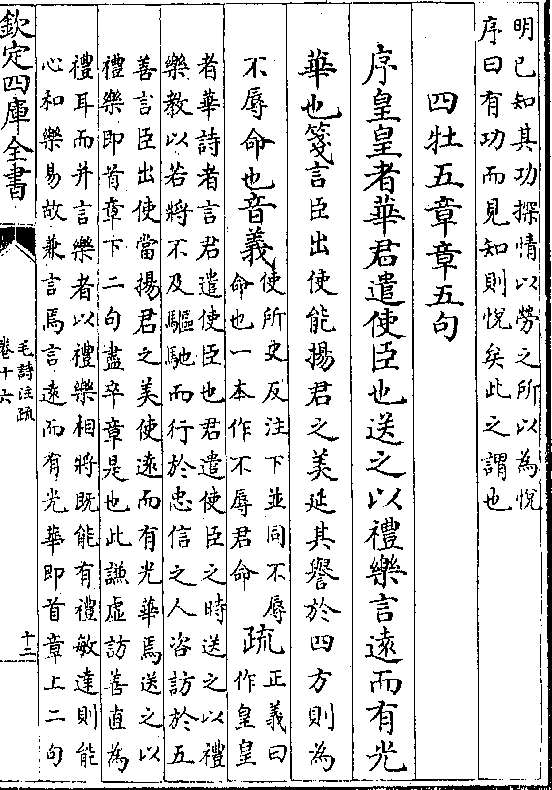 明已知其功探情以勞之所以為悅
序曰有功而見知則悅矣此之謂也
四牡五章章五句
序皇皇者華君遣使臣也送之以禮樂言遠而有光
華也箋言臣出使能揚君之美延其譽於四方則為
不辱命也音義使所史反注下並同不辱
命也一本作不辱君命疏正義曰
作皇皇
者華詩者言君遣使臣也君遣使臣之時送之以禮
樂教以若將不及驅馳而行於忠信之人咨訪於五
善言臣出使當揚君之美使遠而有光華焉送之以
禮樂即首章下二句盡卒章是也此謙虛訪善直為
禮耳而并言樂者以禮樂相將既能有禮敏達則能
心和樂易故兼言焉言遠而有光華即首章上二句
欽定四庫全書
毛詩注疏
卷十六
十二